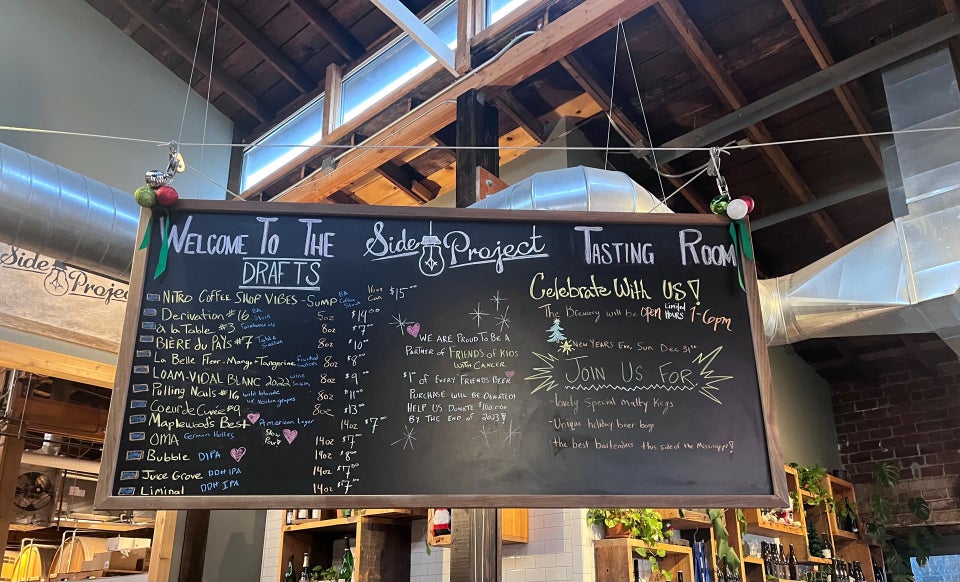 Welcome To The Side Project Tasting Room
Side Project
DRAFTS
Nitro Coffee Shop Vibes - Sump BA Coffee Stout 16oz Can $15⁰⁰
Derivation #16 BA Stout 5oz $14⁰⁰
à la Table #3 8oz $7
BIÈRE du PAYS #7 Table Saison 8oz $10⁰⁰
La Belle Fleur - Mango + Tangerine Fruited Saison 8oz $8⁰⁰
LOAM-VIDAL BLANC 2022 wine Saison 8oz $9⁰⁰
Pulling Nails #16 wild blonde w/ Vidal grapes 8oz $11⁰⁰
Coeur de Cuvée #9 8oz $13⁰⁰
Maplewoods Best American Lager 14oz $7
OMA German Helles Slow Pour 14oz $7⁰⁰
Bubble DIPA 14oz $7⁰⁰
Juice Grove DDH IPA 14oz $7⁰⁰
Liminal DDH IPA 14oz $7⁰⁰
WE ARE PROUD TO BE A
PARTNER OF FRIENDS OF KIDS
WITH CANCER
$1 OF EVERY FRIENDS BEER
PURCHASE WILL BE DONATED!
HELP US DONATE $100,000
BY THE END OF 2023!
Celebrate With Us!
The Brewery will be OPEN Limited HOURS 1-6pm
NEW YEARS EVE, SUN. DEC 31ST
JOIN US FOR
-lovely special malty kegs
-Unique holiday beer bags
-the best bartenders this side of the Mississippi!